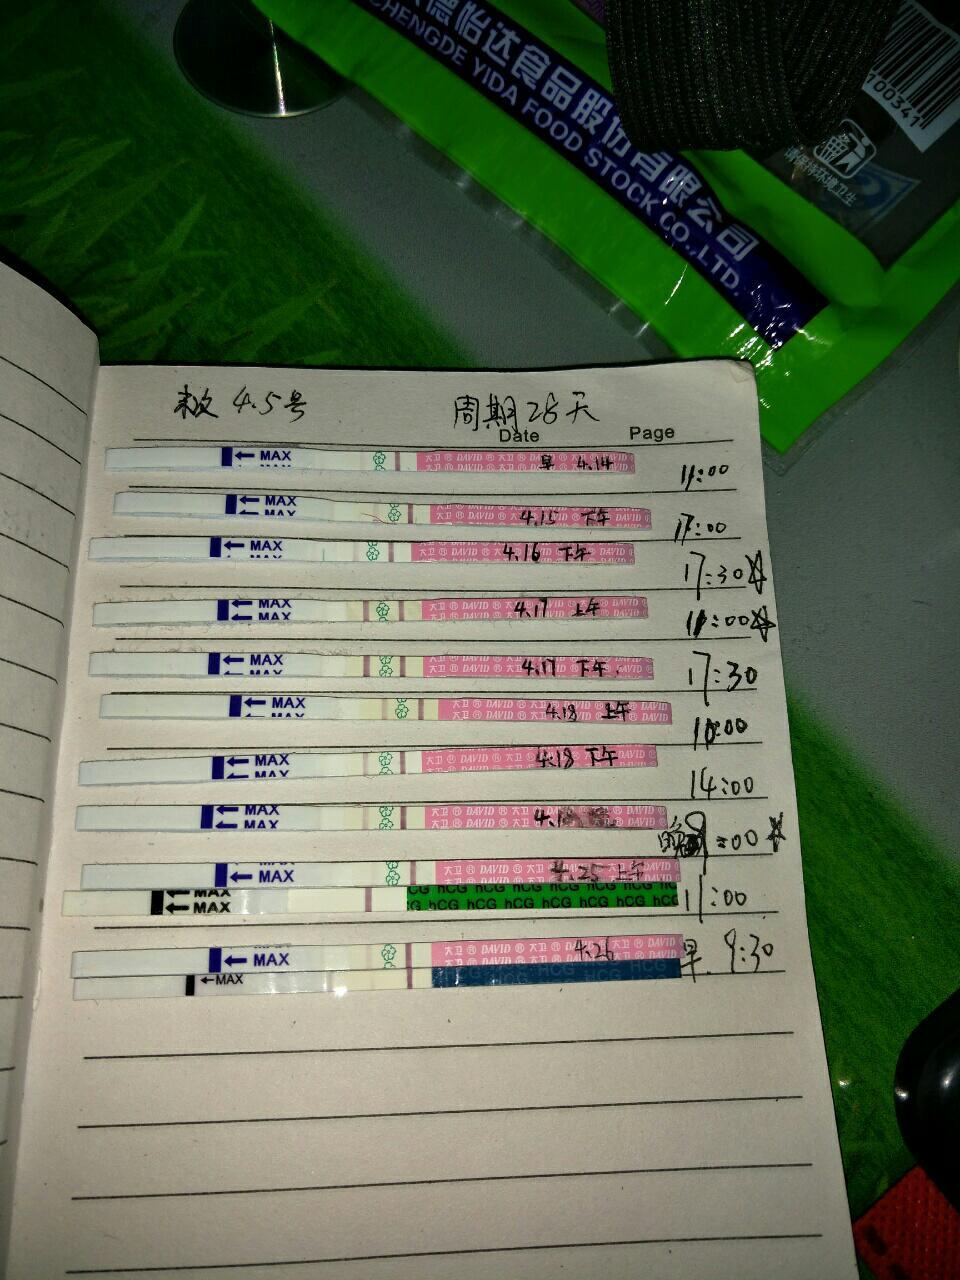 德怡达食品股份有限公司
CHENGDE YIDA FOOD STOCK CO.,LTD.
700341
请保持环境卫生
末次 4.5号 周期28天
Date Page
MAX 大卫 ® DAVID ® 早 4.14 11:00
MAX 大卫 ® DAVID ® 4.15 下午 17:00
MAX 大卫 ® DAVID ® 4.16 下午 17:30
MAX 大卫 ® DAVID ® 4.17 上午 11:00
MAX 大卫 ® DAVID ® 4.17 下午 17:30
MAX 大卫 ® DAVID ® 4.18 上午 10:00
MAX 大卫 ® DAVID ® 4.18 下午 14:00
MAX 大卫 ® DAVID ® 晚 :00
MAX 大卫 ® DAVID ® 4.25 上午
MAX hCG hCG hCG hCG hCG hCG 11:00
MAX 大卫 ® DAVID ® 4.26 早 9:30
MAX HCG HCG HCG